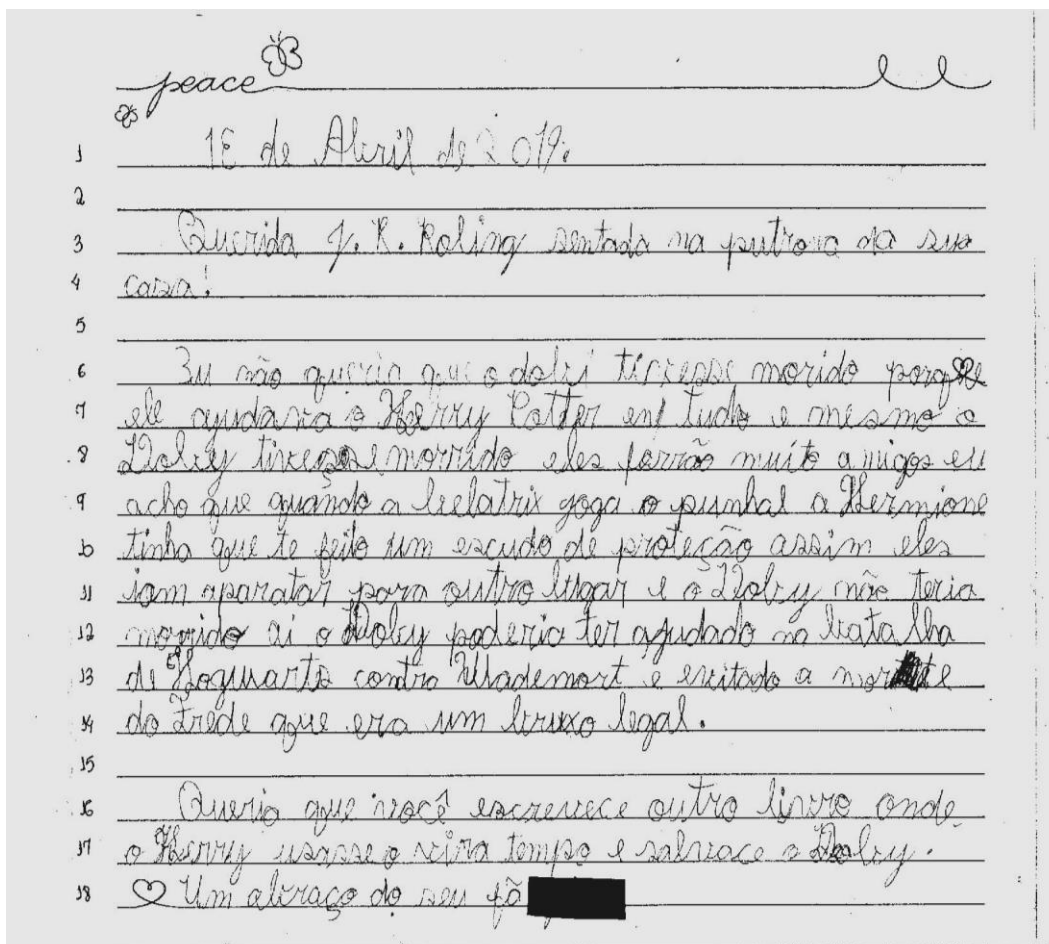 peace
1 18 de Abril de 2019.
2
3 Querida J. K. Roling sentada na putrona da sua
4 casa!
5
6 Eu não queria que o dobi tivesse morido porque
7 ele ajudava o Herry Potter em tudo e mesmo o
8 Doby tivesse morrido eles farão muito amigos eu
9 acho que quando a belatrix joga o punhal a Hermione
10 tinha que te feito um escudo de proteção assim eles
11 iam aparatar para outro lugar e o Doby não teria
12 morrido ai o Doby poderia ter ajudado na batalha
13 de Hogwarts contra Wademort e evitado a morte
14 do Frede que era um bruxo legal.
15
16 Queria que você escrevece outro livro onde
17 o Herry usasse o vira tempo e salvace o Doby.
18 Um abraço do seu fã